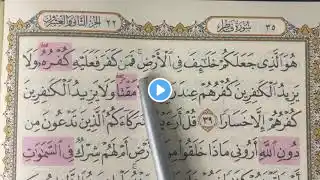 ٣٥ سُورَةُ فَاطِرٍ ٢٢
هُوَ الَّذِي جَعَلَكُمْ خَلَائِفَ فِي الْأَرْضِ فَمَنْ كَفَرَ فَعَلَيْهِ كُفْرُهُ وَلَا
يَزِيدُ الْكَافِرِينَ كُفْرُهُمْ عِندَ مَقْتًا وَلَا يَزِيدُ الْكَافِرِينَ
كُفْرُهُمْ إِلَّا خَسَارًا ٣٩ قُلْ شُرَكَاءَكُمُ الَّذِينَ تَدْعُونَ مِن
دُونِ اللَّهِ أَرُونِي مَاذَا خَلَقُوا أَرْضِ أَمْ لَهُمْ شِرْكٌ فِي السَّمَاوَاتِ